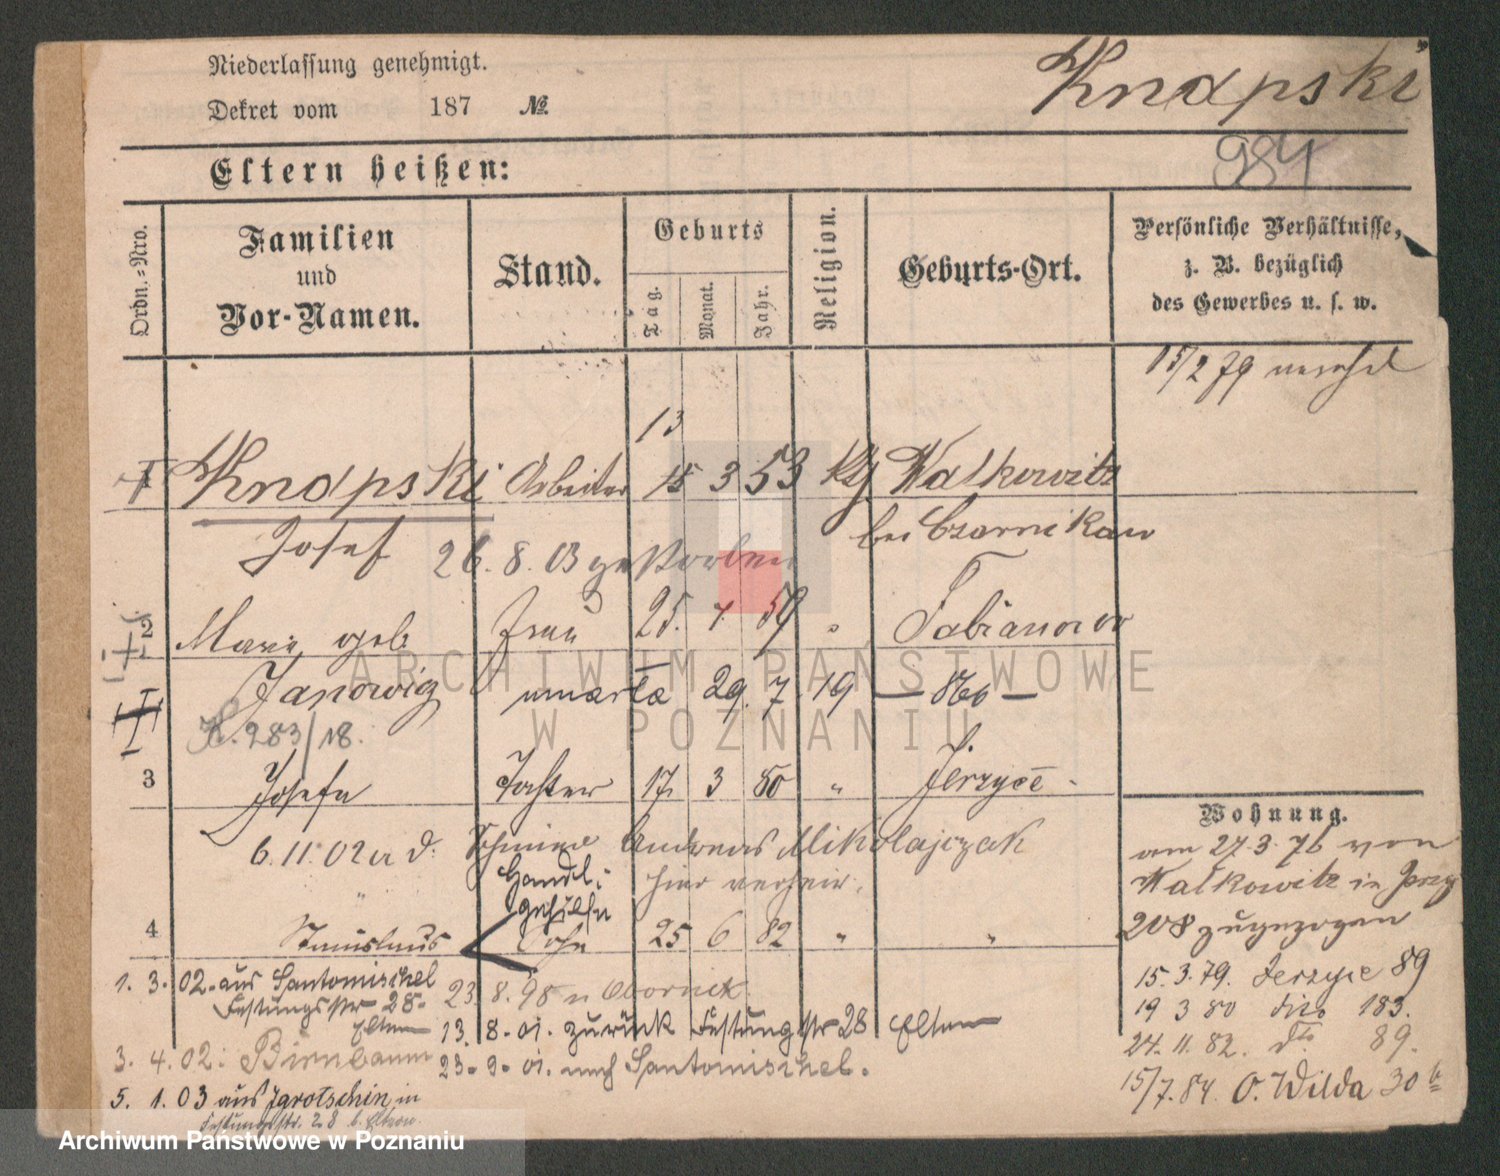 Niederlassung genehmigt.
Dekret vom 187 №
Knapski
984
Eltern heißen:
Ordn.-Nro.
Familien
und
Vor-Namen.
Stand.
Geburts
Tag.
Monat.
Jahr.
Religion.
Geburts-Ort.
Persönliche Verhältnisse,
z. B. bezüglich
des Gewerbes u. s. w.
15/2 79
13
1 Knapski Arbeiter 15 3 53 Ktg Walkowitz
Josef bei Czarnikau
26. 8. 03 gestorben
2 Marie geb. Frau 25. 7. 59 " Fabianowo
Janowicz umarła 29. 7. 19
K. 283/18.
3 Josefa Tochter 17. 3 80 " Jerzyce
6. 11. 02 a d. Andreas Mikolajczak
Handl.-
gehilfe
hier verheir.
4 Stanislaus Sohn 25 6 82 " "
Wohnung.
am 27.3.76 von
Walkowitz in
208 zugezogen
15.3.79. Jerzyce 89
19 3 80 dito 183.
24. 11. 82. dto 89.
15/7. 84. O. Wilda 30 b
1. 3. 02. aus Santomischel
Festungsstr 28.
Eltern
23. 8. 98 n Obornick
13. 8. 01. zurück Festungstr 28 Eltern
3. 4. 02: Birnbaum
23. 9. 01. nach Santomischel.
5. 1. 03 aus Jarotschin in
Festungsstr. 28 b. Eltern
ARCHIWUM PAŃSTWOWE
W POZNANIU
Archiwum Państwowe w Poznaniu